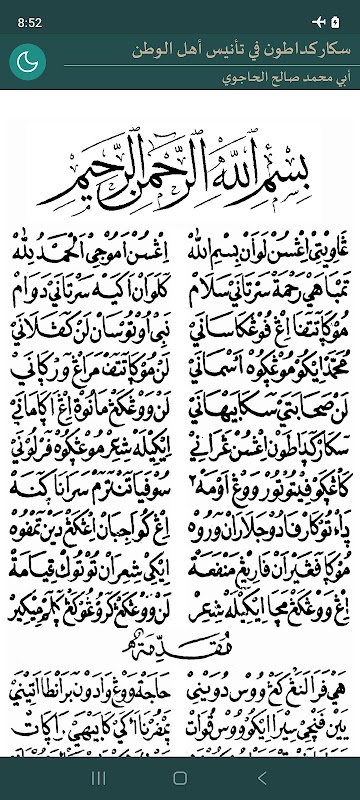 8:52
سكار كداطون في تأنيس أهل الوطن
أبي محمد صالح الحاجوي
بِسْمِ اللهِ الرَّحْمٰنِ الرَّحِيْمِ
غَاوِيْتِيْ اِغْسُنْ لَوَانْ بِسْمِ اللهِ اِغْسُنْ اَمُوْجِيْ اَلْحَمْدُ لِلّٰهِ
تَمْبَاهِيْ رَحْمَةْ سَرْتَانَيْ سَلَامْ كَلَوَانْ اَكَيْهْ سَرْتَانَيْ دَوَامْ
مُوْكَا تَتَفَا اِغْ فَوْغْكَاسَانَيْ نَبِيْ اُوْتُوْسَانْ لَنْ
مُحَمَّدْ اِيْكُوْ مُوْغْكُوْهْ اَسْمَانَيْ لَنْ مُوْكَا تَتَفْ مَرَاغْ وَرْكَانَيْ
لَنْ صَحَابَتَيْ سَكَابَيْهَانَيْ لَنْ وَوْغْكَغْ مَانُوْتْ اِغْ اَكَامَانَيْ
سَكَارْ كَدَاطَوْنْ اِغْسُنْ غَرَانَيْ اِيْكِيْلَهْ شِعِرْ مُوْغْكُوْهْ فَرْلُوْنَيْ
كَاغْكَوْ فِيْتُوْتُوْرْ وَوْغْ اَوْمَهْ٢ سُوْفَيَا تَنْتَرَمْ سَرَانَا كَنَهْ
دَاءْ تُوْكَارْ فَادُوْ جَلَارَانْ وَرُوْهْ اِغْ كَوَاجِبَانْ اِغْكَغْ دَيْنْ تَمْفُوْهْ
مُوْكَا فَغَيْرَانْ فَارِيْغْ مَنْفَعَةْ اِيْكِيْ شِعِرَانْ تُوْتُوْكْ قِيَامَةْ
اِغْ وَوْغْكَغْ مَچَا اِيْكِيْلَهْ شِعِرْ لَنْ وَوْغْكَغْ كَرُوْغُوْكَغْ كَلَمْ مِيْكِيْرْ
مُقَدِّمَةْ
هَيْ فَرَا لَنَغْ كَغْ وُوْسْ دُوَيْنَيْ حَاجَةْ وَوْغْ وَادَوْنْ
يَيْنْ سِيْرَا اِيْكُوْ وُوْسْ قُوَاتْ